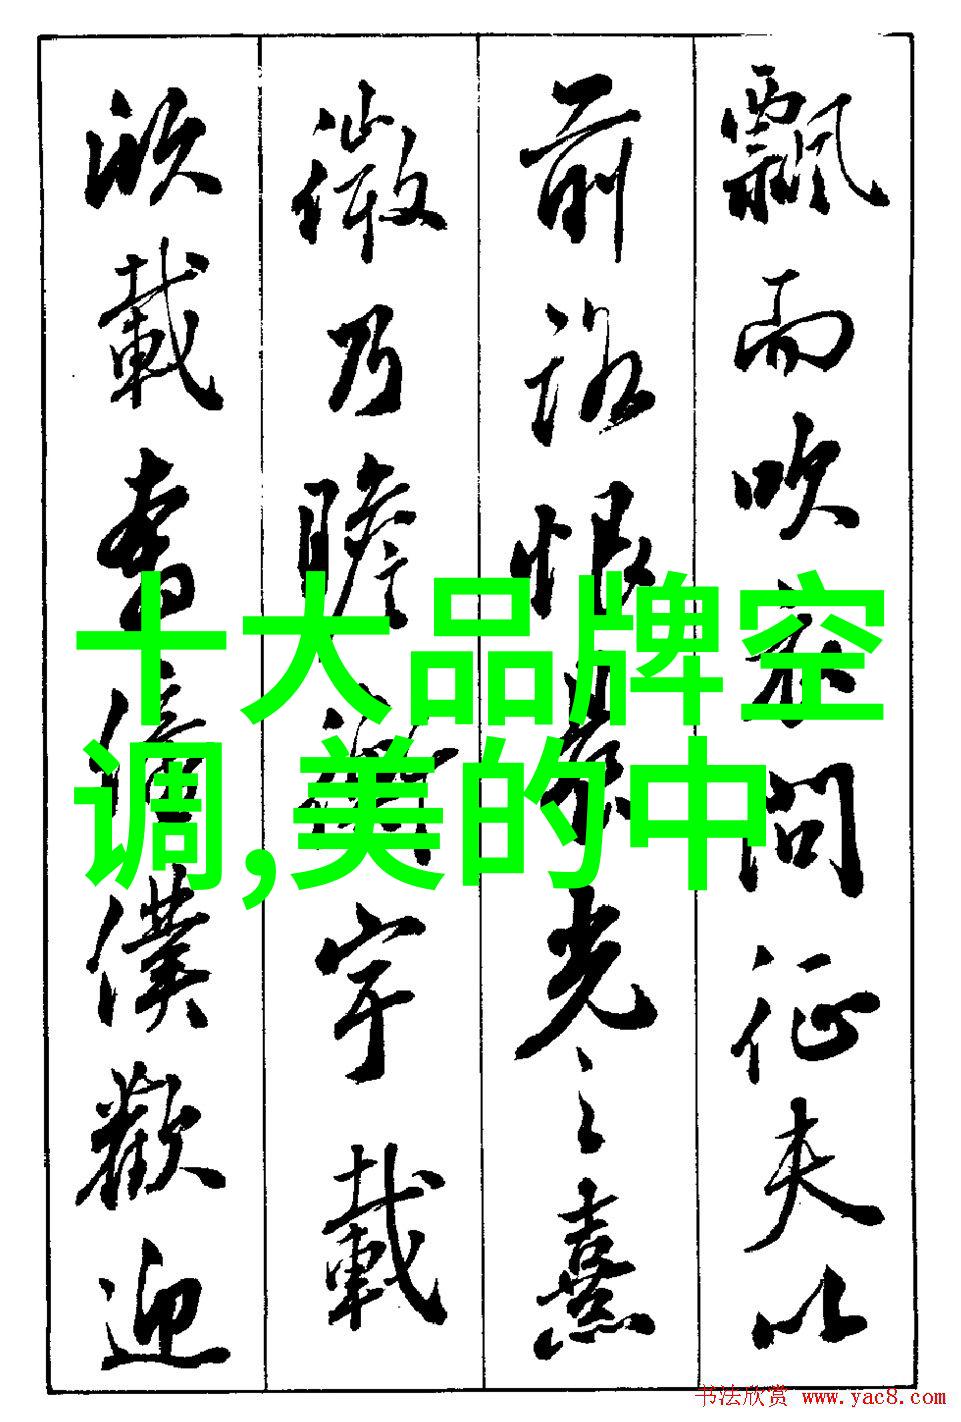 飄而吹衣問征夫以
前路恨晨光之熹
微乃瞻衡宇載
欣載奔僮僕歡迎
十大品牌空
调,美的中
书法欣赏 www.yac8.com